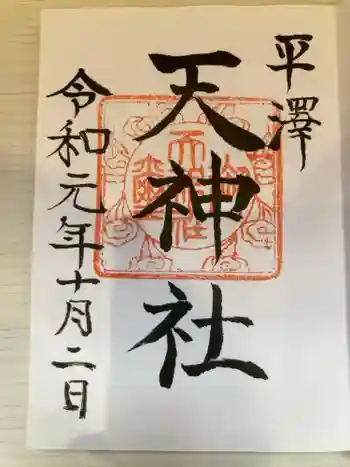 平澤
天神社
令和元年十月二日